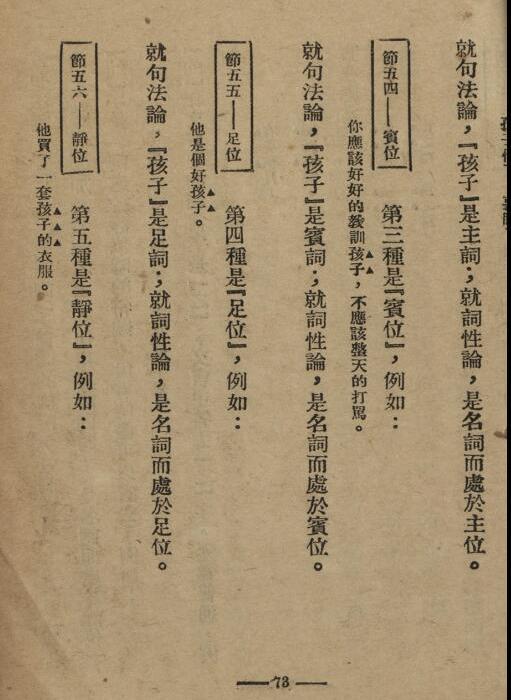 就句法論，『孩子』是主詞；就詞性論，是名詞而處於主位。
節五四——賓位
第三種是『賓位』，例如：
你應該好好的教訓孩子，不應該整天的打罵。
就句法論，『孩子』是賓詞；就詞性論，是名詞而處於賓位。
節五五——足位
第四種是『足位』，例如：
他是個好孩子。
就句法論，『孩子』是足詞；就詞性論，是名詞而處於足位。
節五六——靜位
第五種是『靜位』，例如：
他買了一套孩子的衣服。
—— 73 ——